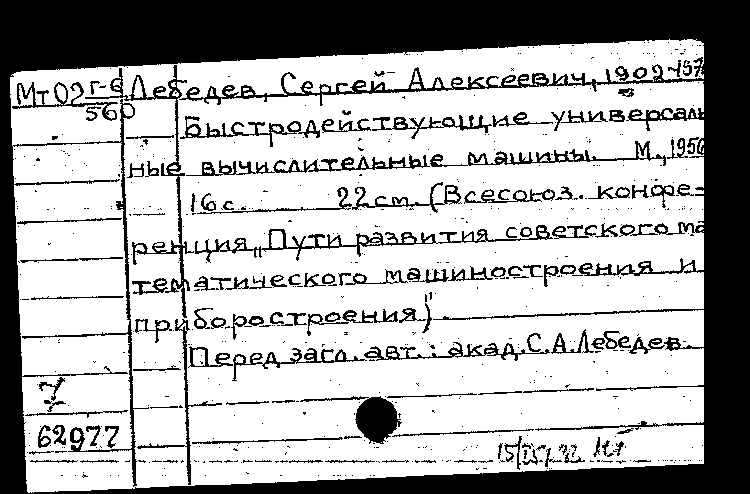 Мт02 Г-6 Лебедев, Сергей Алексеевич, 1902-197
560 Быстродействующие универсаль
ные вычислительные машины. М., 1956
16 с. 22 cm. (Всесоюз. конфе-
ренция „Пути развития советского ма
тематического машиностроения и
приборостроения)".
Перед загл. авт.: акад. С. А. Лебедев.
62977